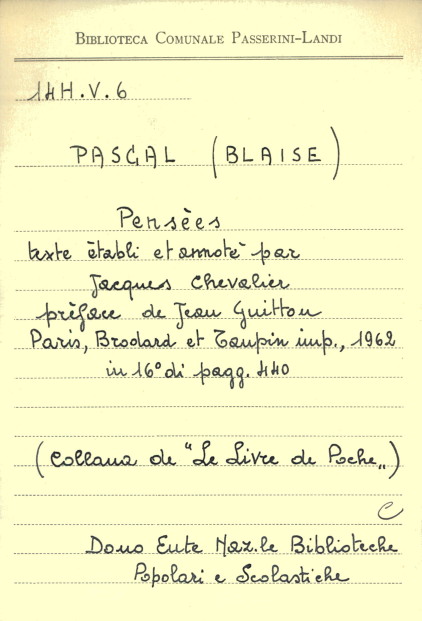 BIBLIOTECA COMUNALE PASSERINI-LANDI
14H.V.6
PASCAL (BLAISE)
Pensèes
texte ètabli et annotè par
Jacques Chevalier
prèface de Jean Guitton
Paris, Brodard et Taupin imp., 1962
in 16° di pagg. 440
(Collana de "Le Livre de Poche„)
C
Dono Ente Naz.le Biblioteche
Popolari e Scolastiche